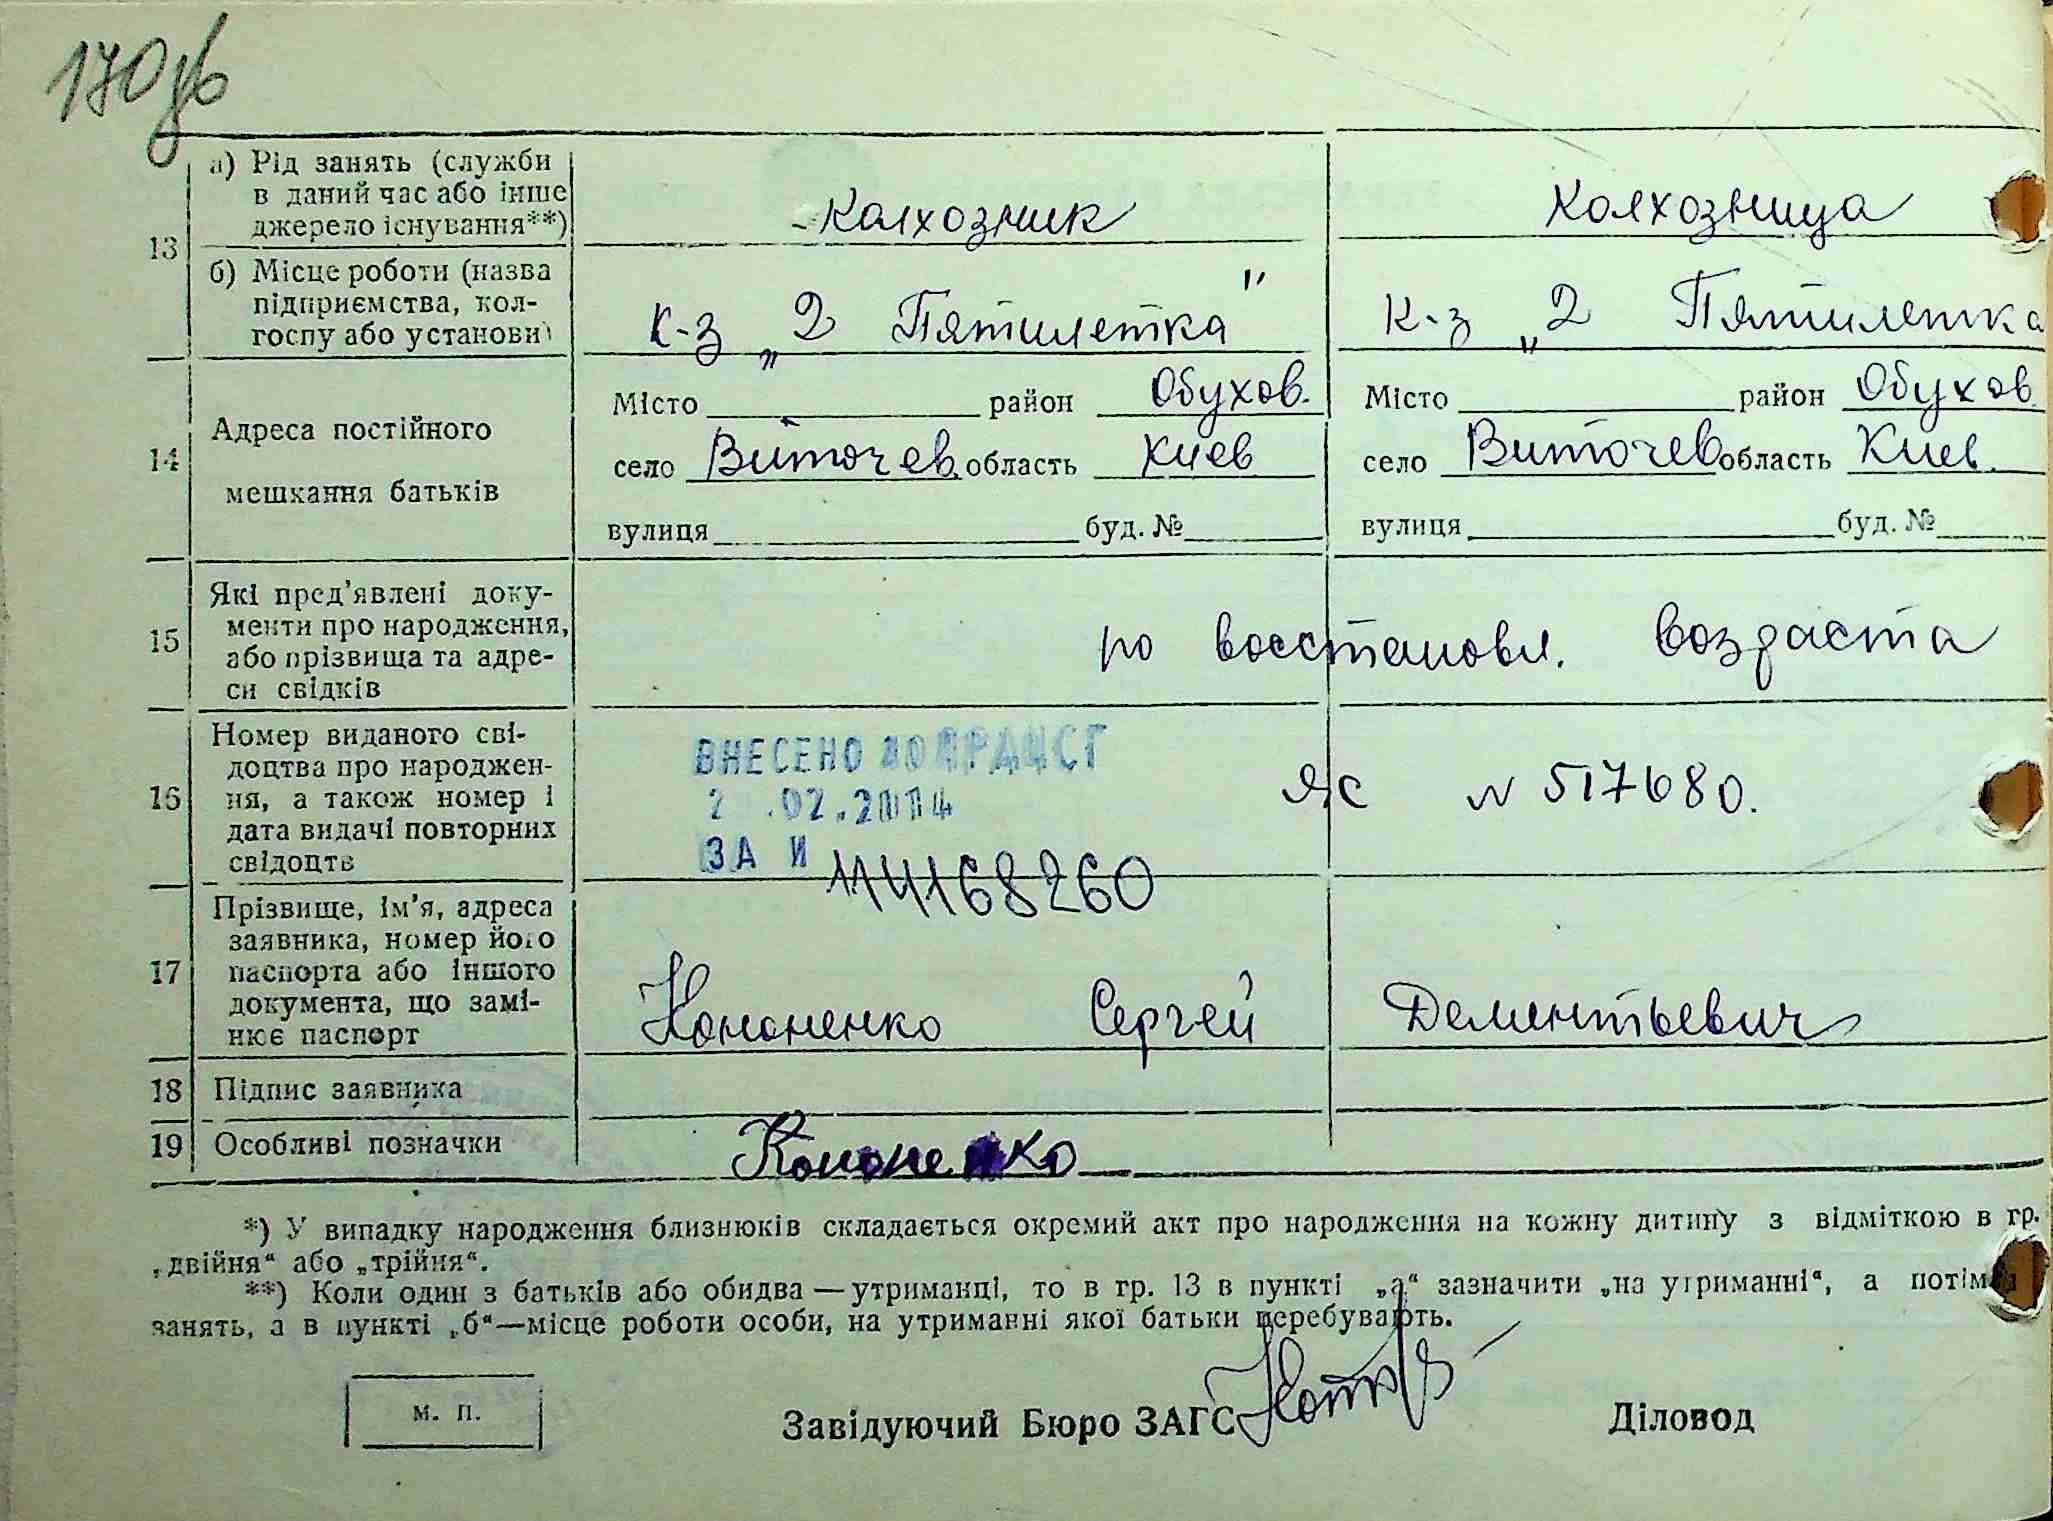 170
а) Рід занять (служби
в даний час або інше
джерело існування**)
Колхозник
Колхозница
13
б) Місце роботи (назва
підприємства, кол-
госпу або установи)
к-з „2 Пятилетка"
к-з „2 Пятилетка
14
Адреса постійного
мешкання батьків
Місто район Обухов.
село Виточев. область Киев
вулиця буд. №
Місто район Обухов
село Виточев область Киев.
вулиця буд. №
15
Які пред'явлені доку-
менти про народження,
або прізвища та адре-
си свідків
по восстановл. возраста
16
Номер виданого сві-
доцтва про народжен-
ня, а також номер і
дата видачі повторних
свідоцтв
ВНЕСЕНО ДО ДРАЦСГ
.02.2014
ЗА №
114168260
ЯС № 517680.
17
Прізвище, ім'я, адреса
заявника, номер його
паспорта або іншого
документа, що замі-
нює паспорт
Кононенко Сергей Дементьевич
18 Підпис заявника
19 Особливі позначки
Кононенко
*) У випадку народження близнюків складається окремий акт про народження на кожну дитину з відміткою в гр.
„двійня“ або „трійня“.
**) Коли один з батьків або обидва — утриманці, то в гр. 13 в пункті „а“ зазначити „на утриманні“, а потім
занять, а в пункті „б“—місце роботи особи, на утриманні якої батьки перебувають.
м. п.
Завідуючий Бюро ЗАГС
Діловод